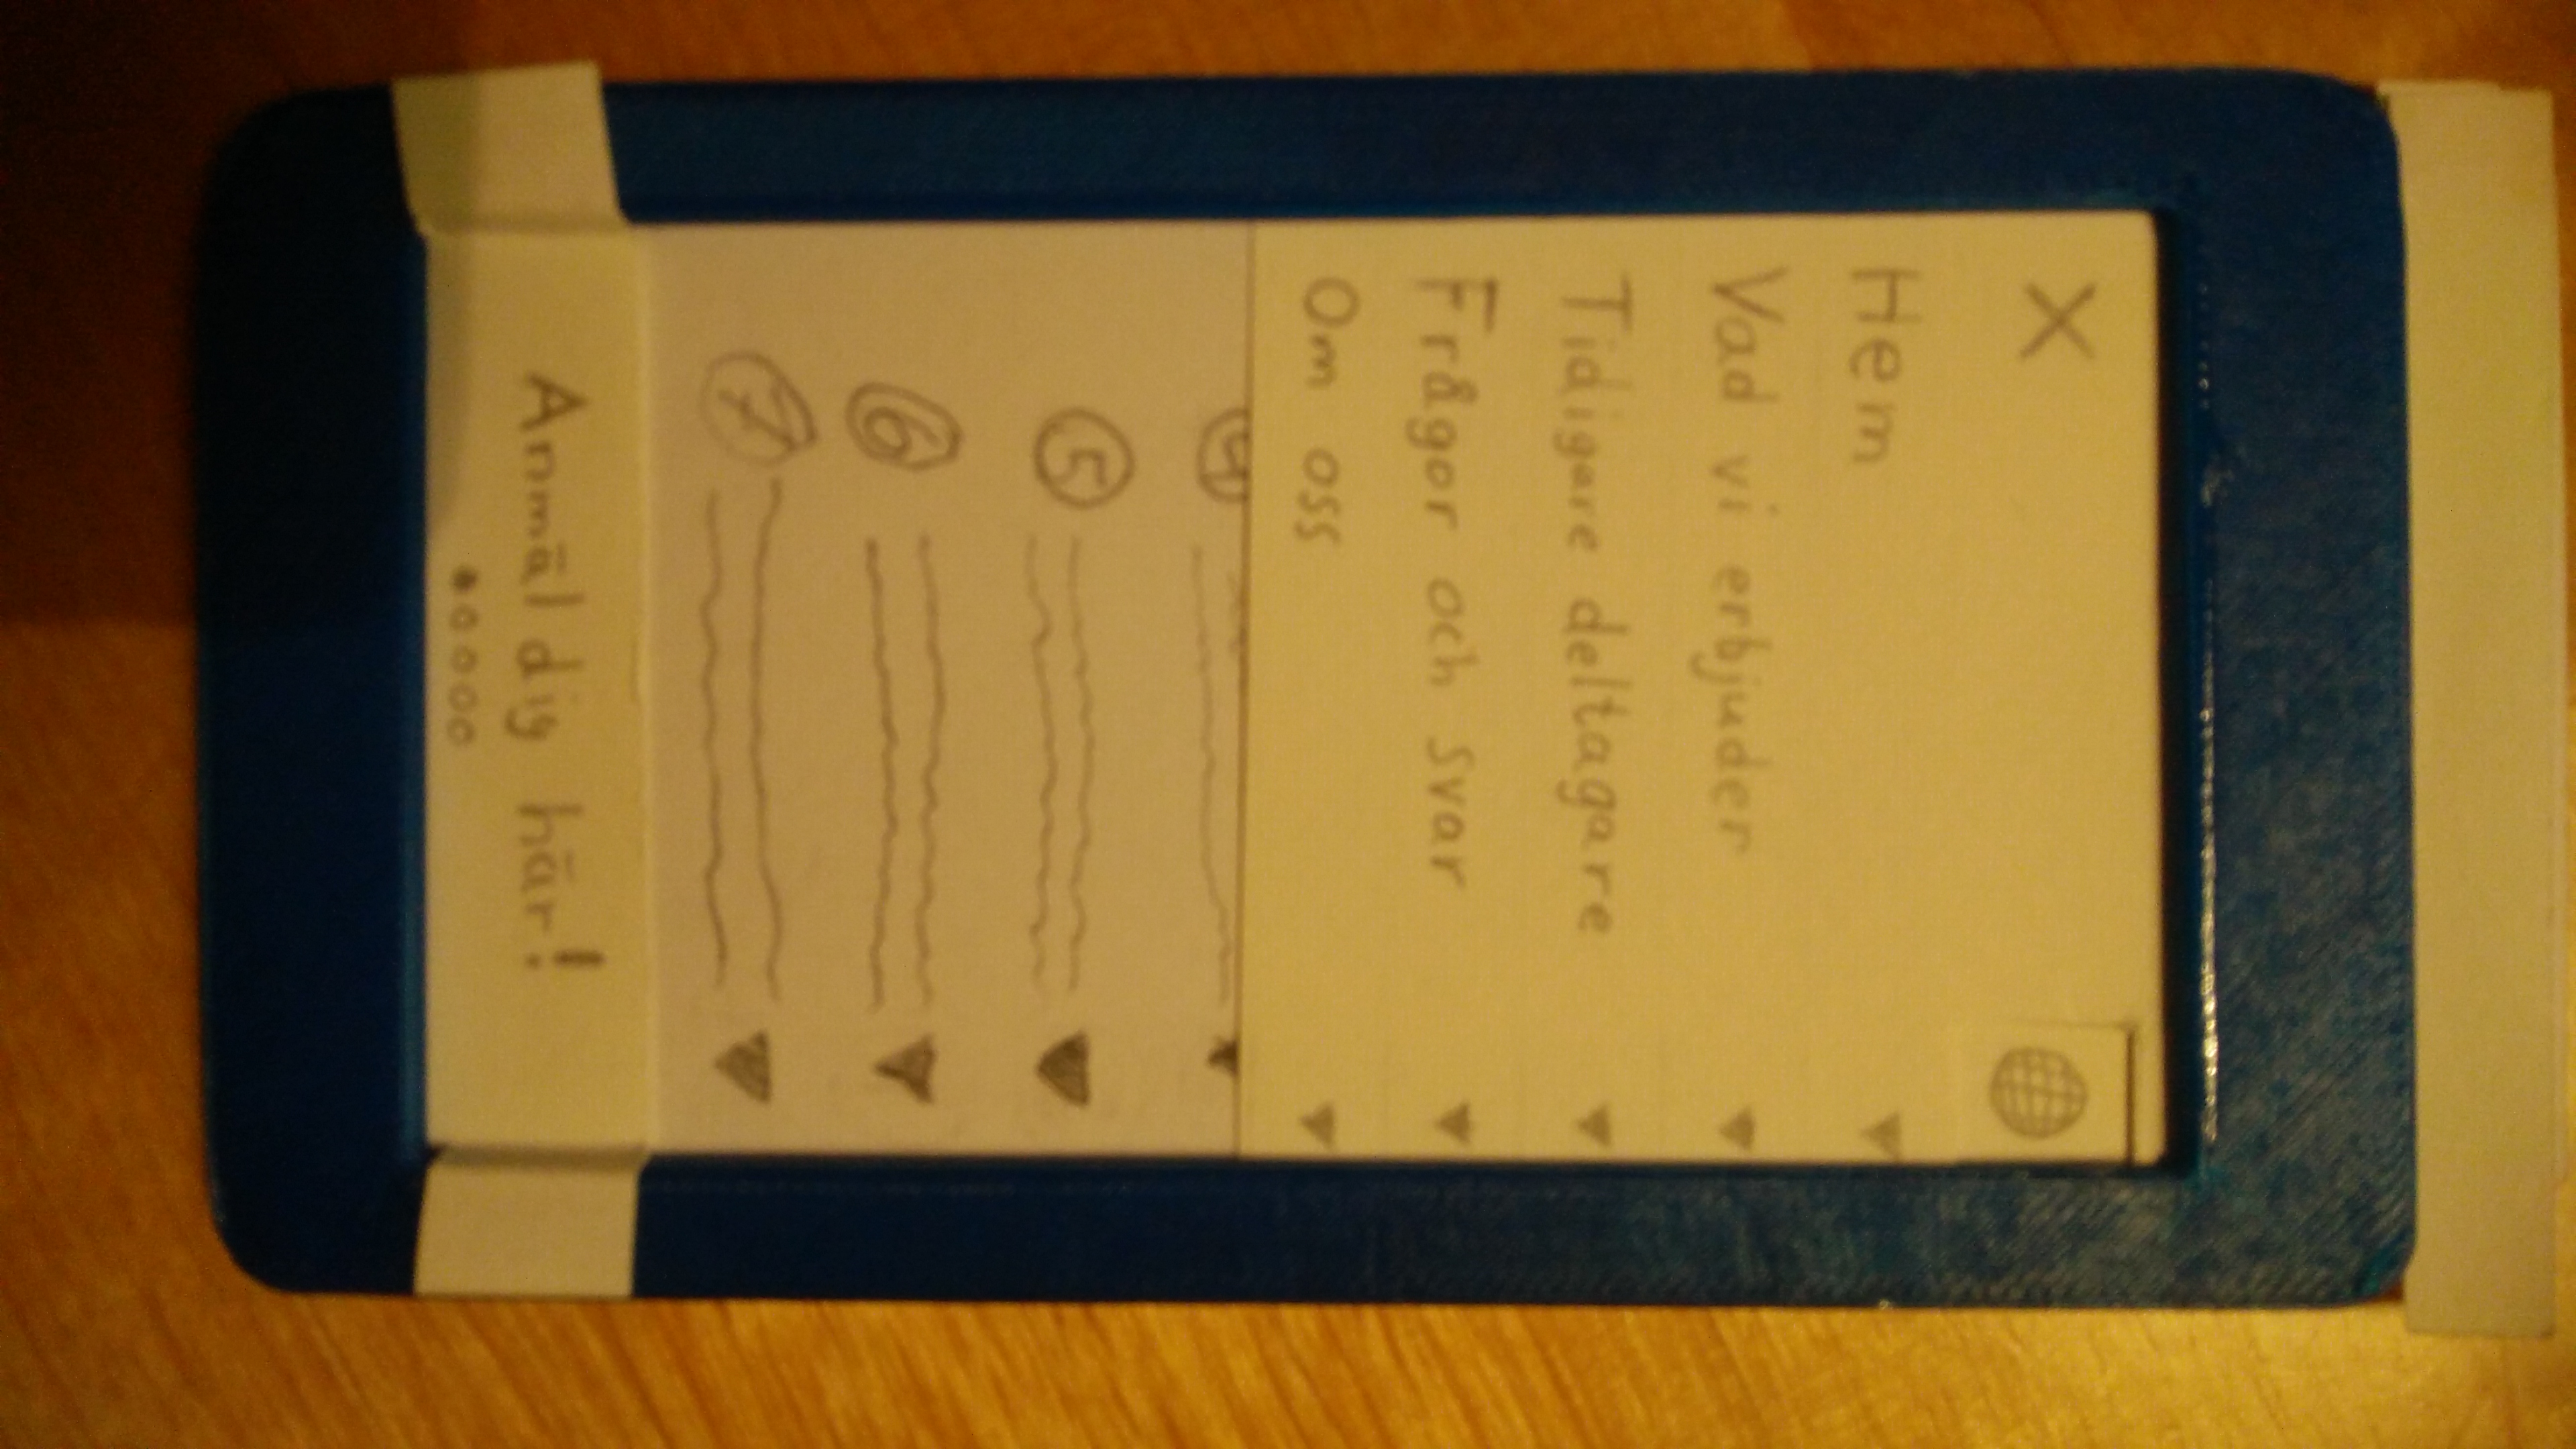 X
Hem
Vad vi erbjuder
Tidigare deltagare
Frågor och svar
Om oss
4
5
6
7
Anmäl dig här!